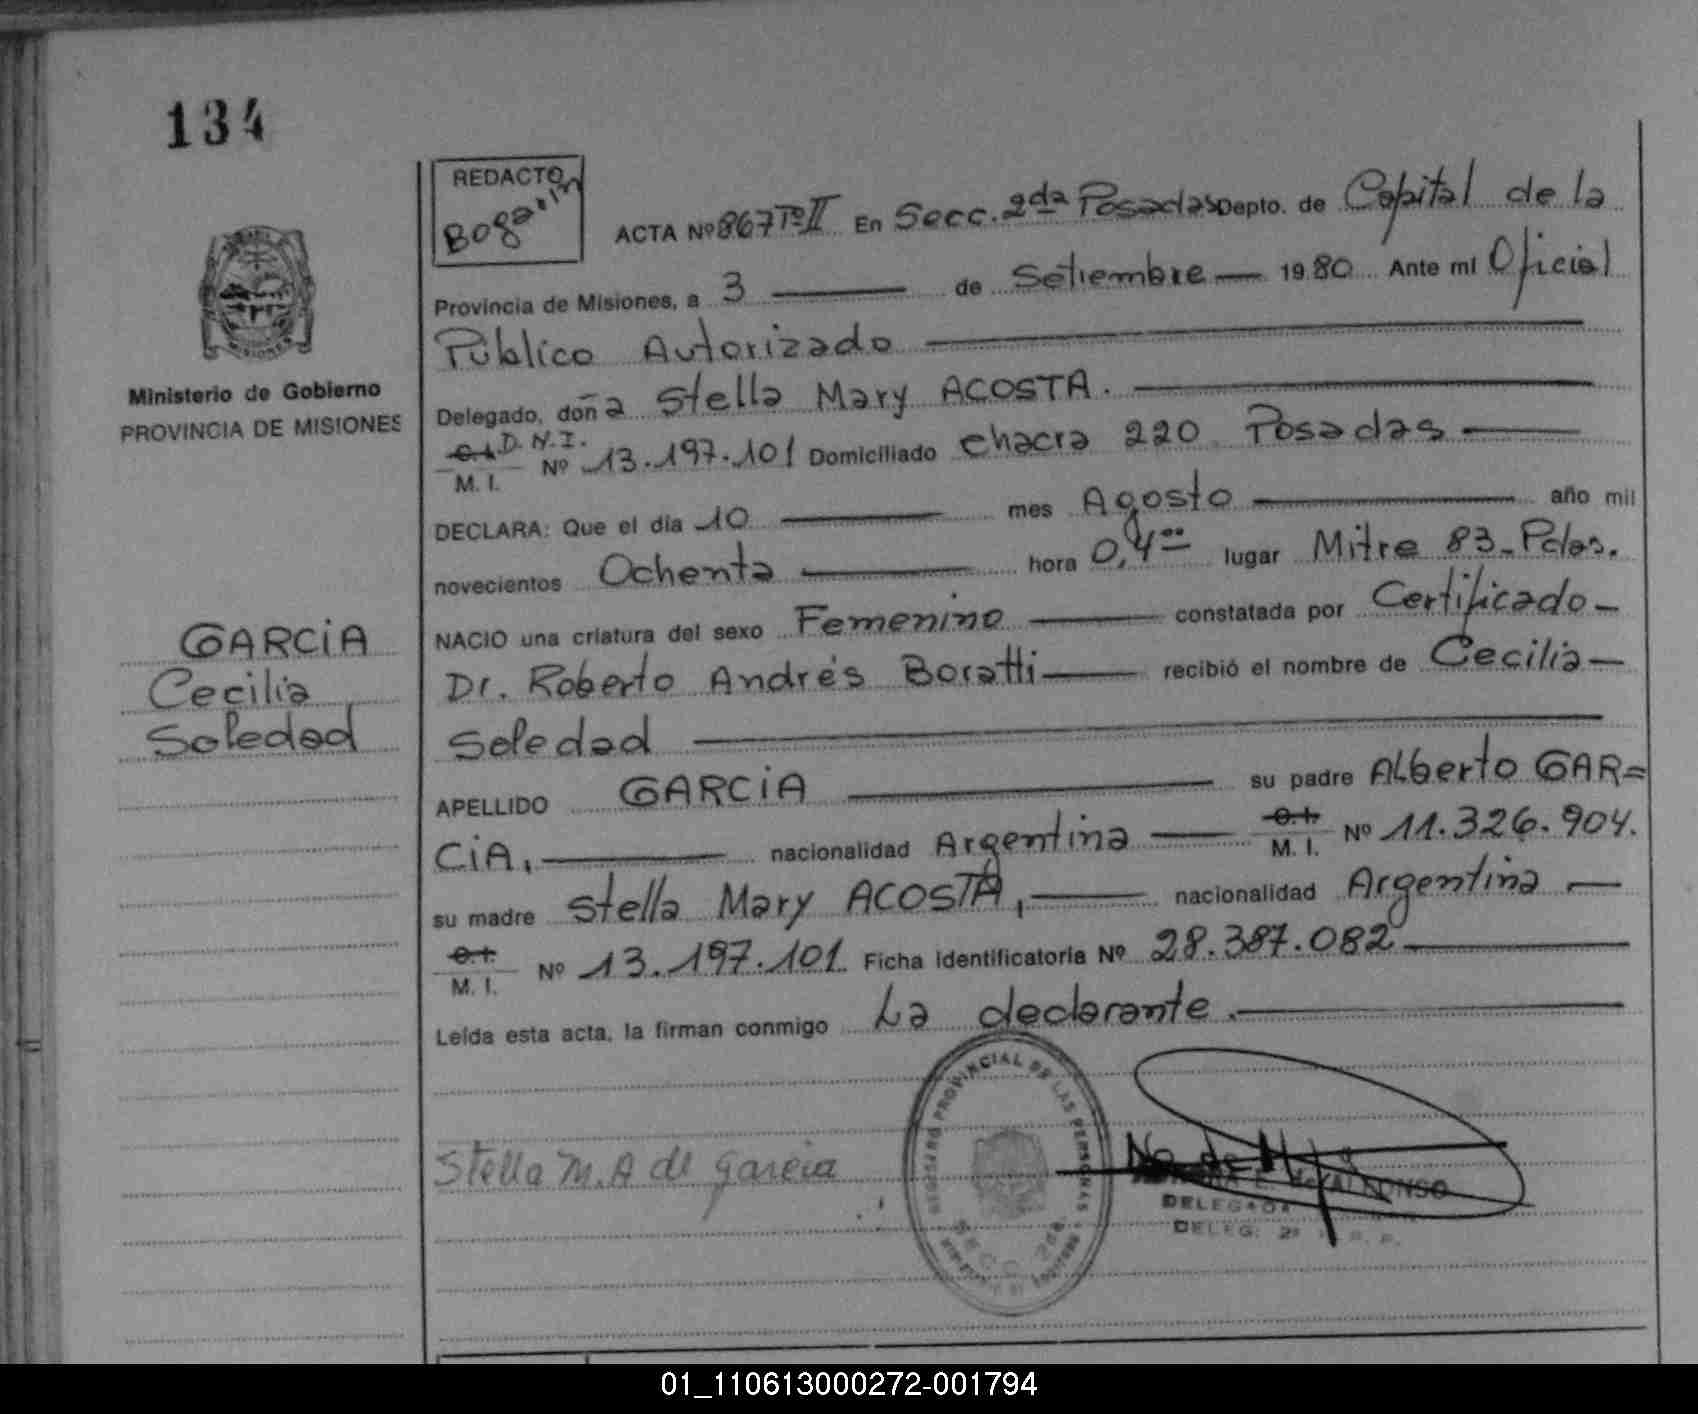 134
REDACTO
Bogarin
ACTA Nº 867 Tº II En Secc. 2da Posadas Depto. de Capital de la
Provincia de Misiones, a 3 de Setiembre 1980 Ante mi Oficial
Público Autorizado
Delegado, doña Stella Mary ACOSTA.
C.I. D.N.I.
M. I. Nº 13.197.101 Domiciliado chacra 220 Posadas
DECLARA: Que el dia 10 mes Agosto año mil
novecientos Ochenta hora 0,4°° lugar Mitre 83-Pdas.
NACIO una criatura del sexo Femenino constatada por Certificado
Dr. Roberto Andrés Boratti recibió el nombre de Cecilia
Soledad
APELLIDO GARCIA su padre Alberto GAR=
CIA, nacionalidad Argentina C.I. M. I. Nº 11.326.904.
su madre Stella Mary ACOSTA, nacionalidad Argentina
C.I. M. I. Nº 13.197.101 Ficha identificatoria Nº 28.387.082
Leida esta acta, la firman conmigo La declarante.
Ministerio de Gobierno
PROVINCIA DE MISIONES
GARCIA
Cecilia
Soledad
Stella M. A de Garcia
REGISTRO PROVINCIAL DE LAS PERSONAS
SECC. 2da.
DELEGADA
DELEG. 2ª R. P. P.
01_110613000272-001794